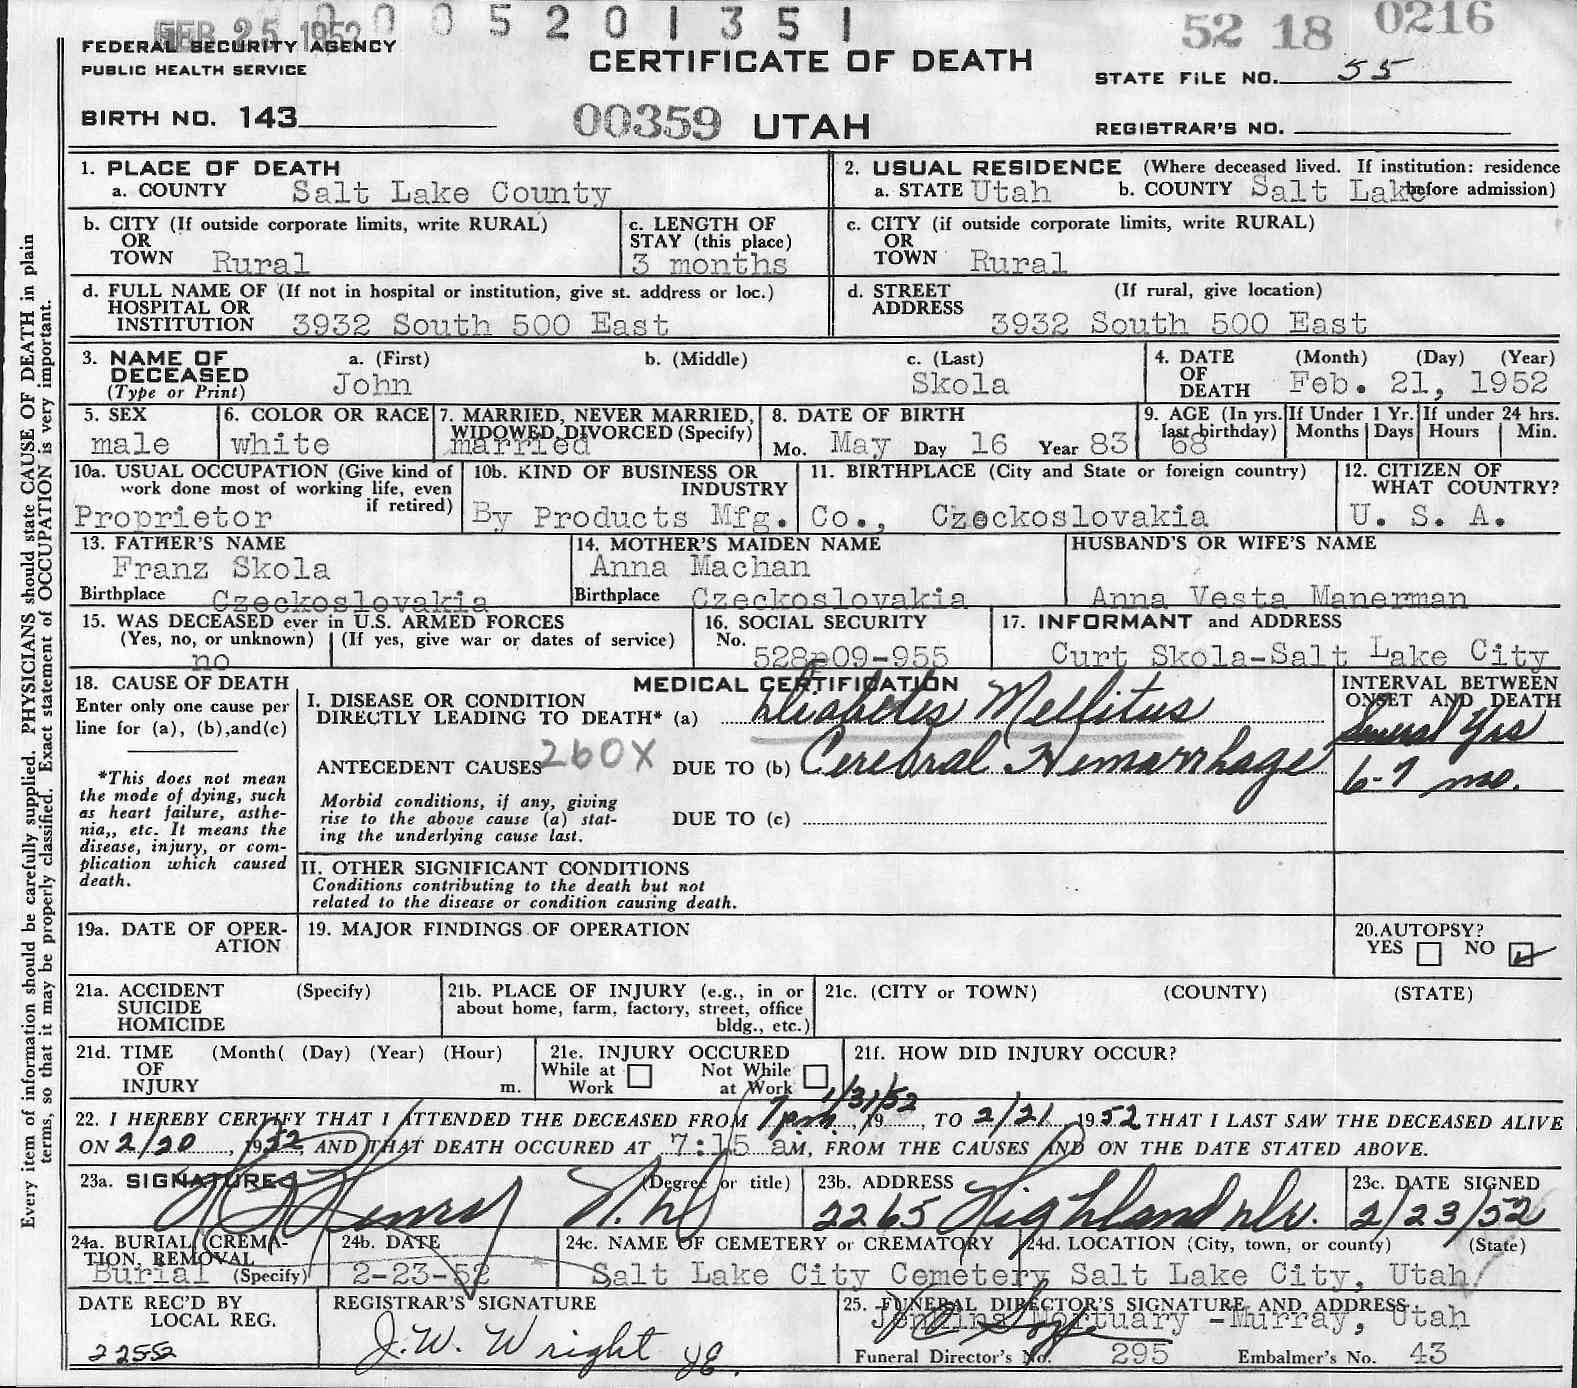 FEB 25 1952
0 0 5 2 0 1 3 5 1
52 18 0216
FEDERAL SECURITY AGENCY
PUBLIC HEALTH SERVICE
CERTIFICATE OF DEATH
STATE FILE NO. 55
BIRTH NO. 143
00359 UTAH
REGISTRAR'S NO.
Every item of information should be carefully supplied. PHYSICIANS should state CAUSE OF DEATH in plain
terms, so that it may be properly classified. Exact statement of OCCUPATION is very important.
1. PLACE OF DEATH
a. COUNTY Salt Lake County
2. USUAL RESIDENCE (Where deceased lived. If institution: residence
before admission)
a. STATE Utah b. COUNTY Salt Lake
b. CITY (If outside corporate limits, write RURAL)
OR
TOWN Rural
c. LENGTH OF
STAY (this place)
3 months
c. CITY (if outside corporate limits, write RURAL)
OR
TOWN Rural
d. FULL NAME OF (If not in hospital or institution, give st. address or loc.)
HOSPITAL OR
INSTITUTION 3932 South 500 East
d. STREET (If rural, give location)
ADDRESS
3932 South 500 East
3. NAME OF
DECEASED
(Type or Print)
a. (First) b. (Middle) c. (Last)
John Skola
4. DATE (Month) (Day) (Year)
OF
DEATH Feb. 21, 1952
5. SEX
male
6. COLOR OR RACE
white
7. MARRIED, NEVER MARRIED,
WIDOWED, DIVORCED (Specify)
married
8. DATE OF BIRTH
Mo. May Day 16 Year 83
9. AGE (In yrs.
last birthday)
68
If Under 1 Yr.
Months Days
If under 24 hrs.
Hours Min.
10a. USUAL OCCUPATION (Give kind of
work done most of working life, even
if retired)
Proprietor
10b. KIND OF BUSINESS OR
INDUSTRY
By Products Mfg. Co.,
11. BIRTHPLACE (City and State or foreign country)
Czeckoslovakia
12. CITIZEN OF
WHAT COUNTRY?
U. S. A.
13. FATHER'S NAME
Franz Skola
Birthplace Czeckoslovakia
14. MOTHER'S MAIDEN NAME
Anna Machan
Birthplace Czeckoslovakia
HUSBAND'S OR WIFE'S NAME
Anna Vesta Manerman
15. WAS DECEASED ever in U.S. ARMED FORCES
(Yes, no, or unknown) (If yes, give war or dates of service)
no
16. SOCIAL SECURITY
No.
528-09-955
17. INFORMANT and ADDRESS
Curt Skola-Salt Lake City
18. CAUSE OF DEATH
Enter only one cause per
line for (a), (b),and(c)
*This does not mean
the mode of dying, such
as heart failure, asthe-
nia,, etc. It means the
disease, injury, or com-
plication which caused
death.
MEDICAL CERTIFICATION
I. DISEASE OR CONDITION
DIRECTLY LEADING TO DEATH* (a) Diabetes Mellitus
ANTECEDENT CAUSES 260X DUE TO (b) Cerebral Hemorrhage
Morbid conditions, if any, giving
rise to the above cause (a) stat-
ing the underlying cause last.
DUE TO (c)
INTERVAL BETWEEN
ONSET AND DEATH
Several Yrs
6-7 mo.
II. OTHER SIGNIFICANT CONDITIONS
Conditions contributing to the death but not
related to the disease or condition causing death.
19a. DATE OF OPER-
ATION
19. MAJOR FINDINGS OF OPERATION
20. AUTOPSY?
YES NO
21a. ACCIDENT (Specify)
SUICIDE
HOMICIDE
21b. PLACE OF INJURY (e.g., in or
about home, farm, factory, street, office
bldg., etc.)
21c. (CITY or TOWN) (COUNTY) (STATE)
21d. TIME (Month( (Day) (Year) (Hour)
OF
INJURY m.
21e. INJURY OCCURED
While at Not While
Work at Work
21f. HOW DID INJURY OCCUR?
22. I HEREBY CERTIFY THAT I ATTENDED THE DECEASED FROM 7pm 1/31/52, 19, TO 2/21, 1952 THAT I LAST SAW THE DECEASED ALIVE
ON 2/20, 1952, AND THAT DEATH OCCURED AT 7:15 aM, FROM THE CAUSES AND ON THE DATE STATED ABOVE.
23a. SIGNATURE (Degree or title)
Henry M.D.
23b. ADDRESS
2265 Highland Dr.
23c. DATE SIGNED
2/23/52
24a. BURIAL, CREMA-
TION, REMOVAL
Burial (Specify)
24b. DATE
2-23-52
24c. NAME OF CEMETERY or CREMATORY
Salt Lake City Cemetery
24d. LOCATION (City, town, or county) (State)
Salt Lake City, Utah
DATE REC'D BY
LOCAL REG.
22552
REGISTRAR'S SIGNATURE
J. W. Wright
25. FUNERAL DIRECTOR'S SIGNATURE AND ADDRESS
Jenkins Mortuary -Murray, Utah
Funeral Director's No. 295 Embalmer's No. 43